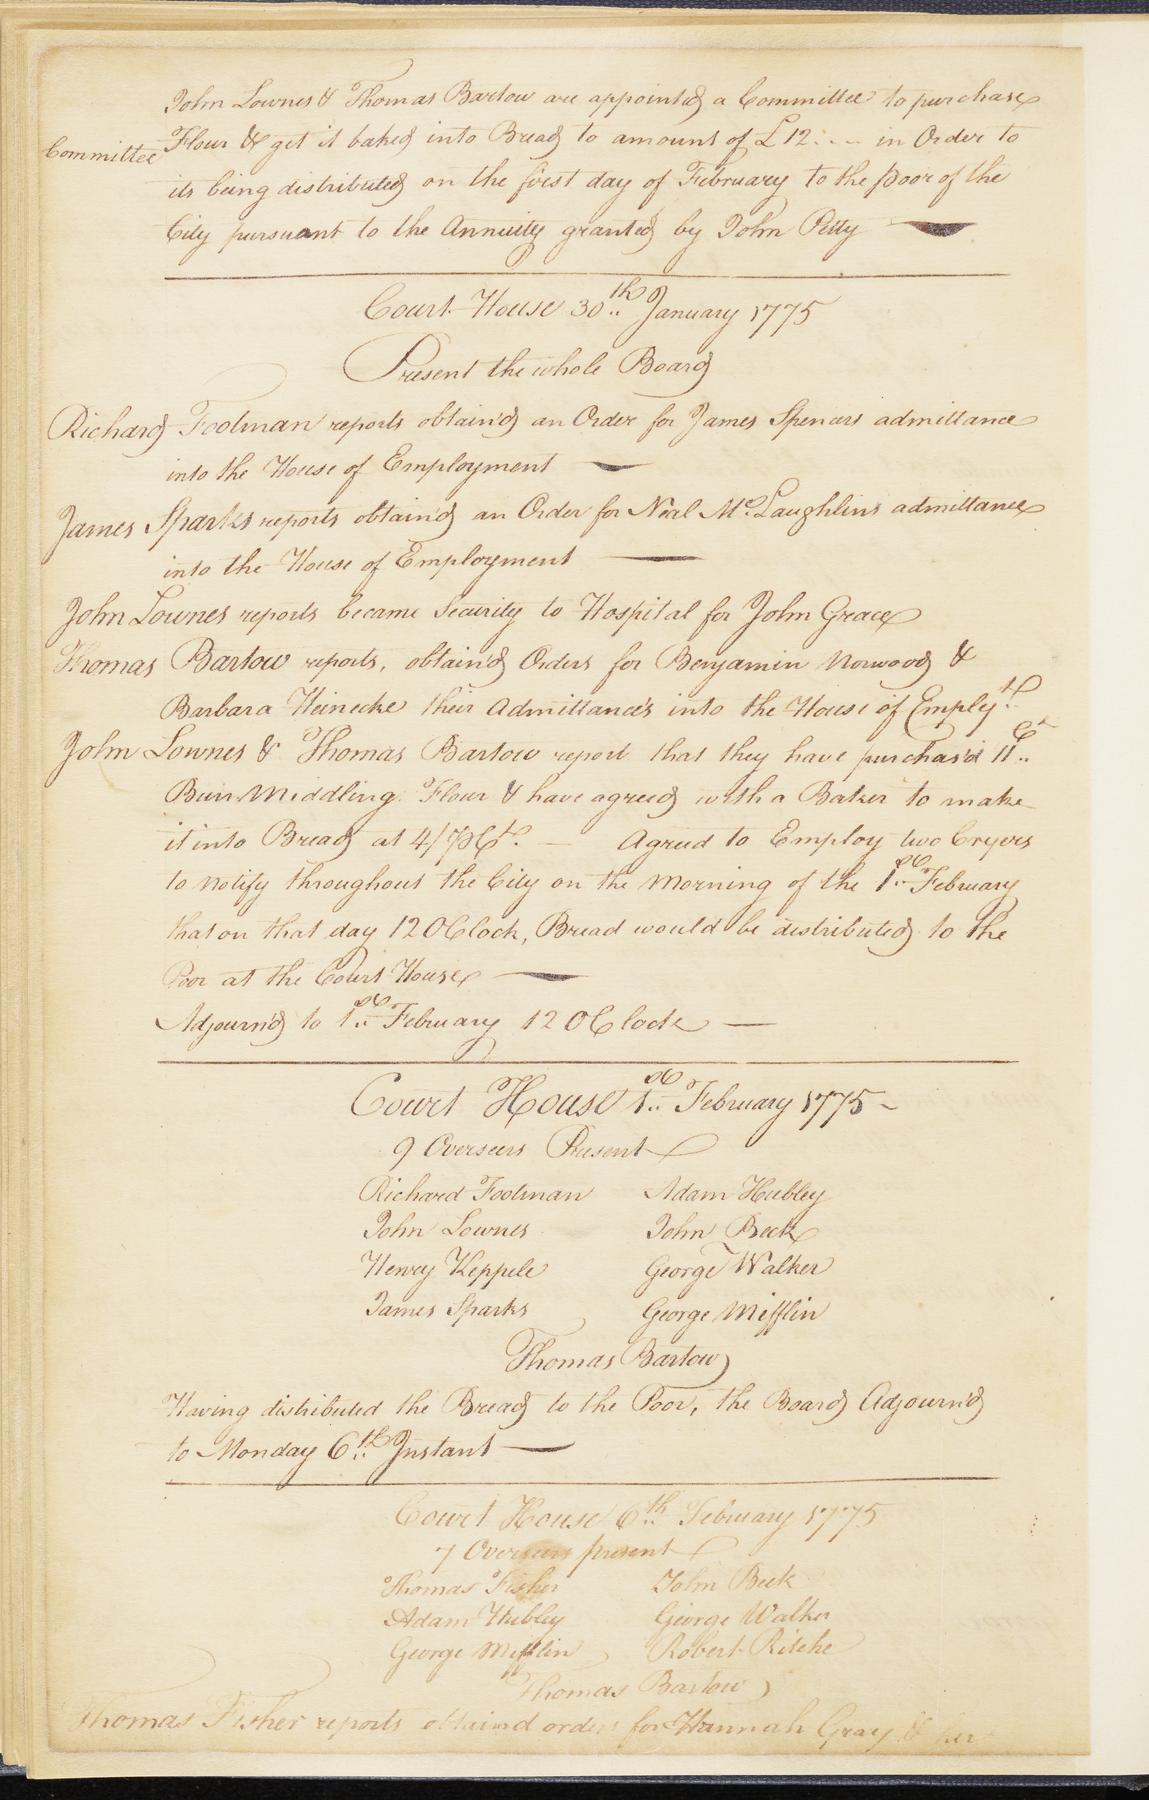 John Lownes & Thomas Bartow are appointed a Committee to purchase
Committee Flour & get it baked into Bread to amount of £12 : - - in Order to
its being distributed on the first day of February to the poor of the
City pursuant to the Annuity granted by John Petty
Court House 30th January 1775
Present the whole Board
Richard Footman reports obtain'd an Order for James Spencers admittance
into the House of Employment
James Sparks reports obtain'd an Order for Neal McLaughlins admittance
into the House of Employment
John Lownes reports became Security to Hospital for John Grace
Thomas Bartow reports, obtain'd Orders for Benjamin Norwood &
Barbara Heinecke their Admittances into the House of Employt
John Lownes & Thomas Bartow report that they have purchas'd 11 Ct
Middling Flour & have agreed with a Baker to make
it into Bread at 4/ Ct. — Agreed to Employ two Cryers
to notify throughout the City on the Morning of the 1st February
that on that day 12 OClock, Bread would be distributed to the
Poor at the Court House
Adjourn'd to 1st February 12 OClock —
Court House 1st February 1775 -
9 Overseers Present
Richard Footman Adam Hubley
John Lownes John Beck
Henry Keppele George Walker
James Sparks George Mifflin
Thomas Bartow
Having distributed the Bread to the Poor, the Board Adjourn'd
to Monday 6th Instant —
Court House 6th February 1775
7 Overseers present
Thomas Fisher John Beck
Adam Hubley George Walker
George Mifflin Robert Ritche
Thomas Bartow
Thomas Fisher reports obtaind orders for Hannah Gray & her